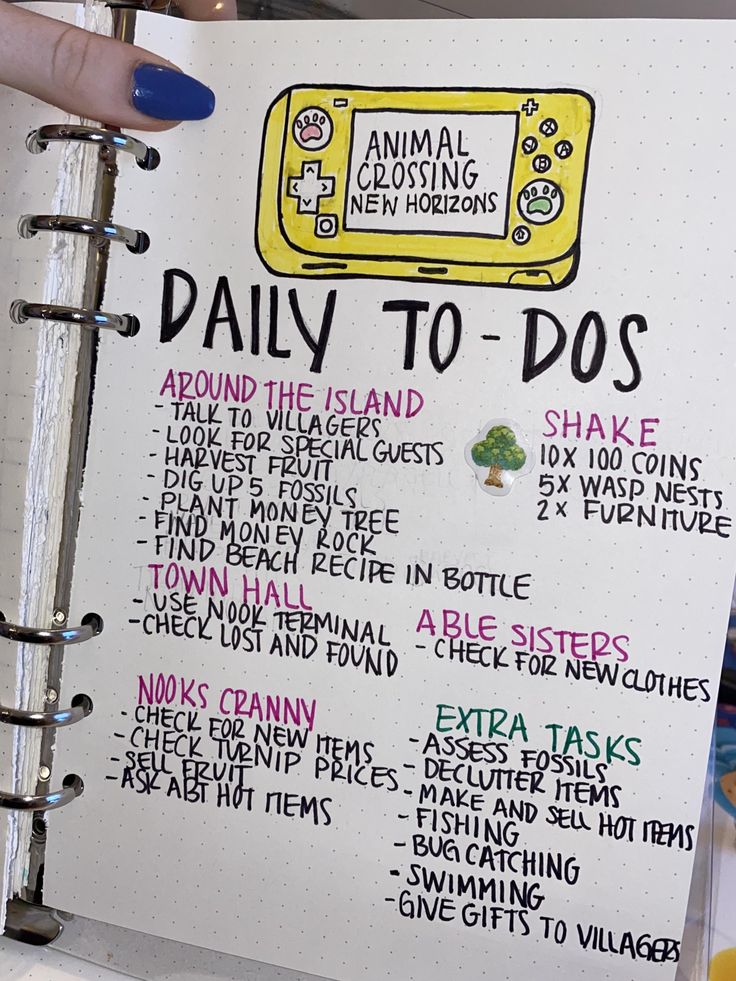 ANIMAL
CROSSING
NEW HORIZONS
DAILY TO-DOS
AROUND THE ISLAND
- TALK TO VILLAGERS
- LOOK FOR SPECIAL GUESTS
- HARVEST FRUIT
- DIG UP 5 FOSSILS
- PLANT MONEY TREE
- FIND MONEY ROCK
- FIND BEACH RECIPE IN BOTTLE
SHAKE
10X 100 COINS
5X WASP NESTS
2X FURNITURE
TOWN HALL
- USE NOOK TERMINAL
- CHECK LOST AND FOUND
ABLE SISTERS
- CHECK FOR NEW CLOTHES
NOOKS CRANNY
- CHECK FOR NEW ITEMS
- CHECK TURNIP PRICES
- SELL FRUIT
- ASK ABT HOT ITEMS
EXTRA TASKS
- ASSESS FOSSILS
- DECLUTTER ITEMS
- MAKE AND SELL HOT ITEMS
- FISHING
- BUG CATCHING
- SWIMMING
- GIVE GIFTS TO VILLAGERS